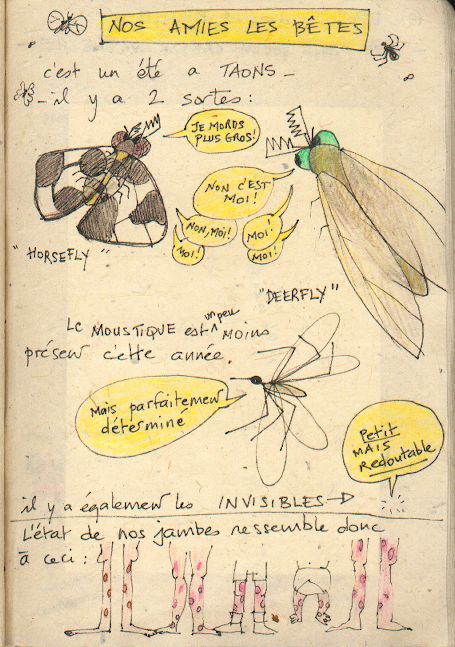 NOS AMIES LES BÊTES
c'est un été a TAONS_
_il y a 2 sortes:
JE MORDS
PLUS GROS!
NON C'EST
MOI!
NON, MOI!
MOI!
MOI!
MOI!
"HORSEFLY"
"DEERFLY"
Le MOUSTIQUE est un peu MOINS
présent cette année.
Mais parfaitement
déterminé
PETIT
MAIS
Redoutable
il y a également les INVISIBLES
L'état de nos jambes ressemble donc
à ceci: